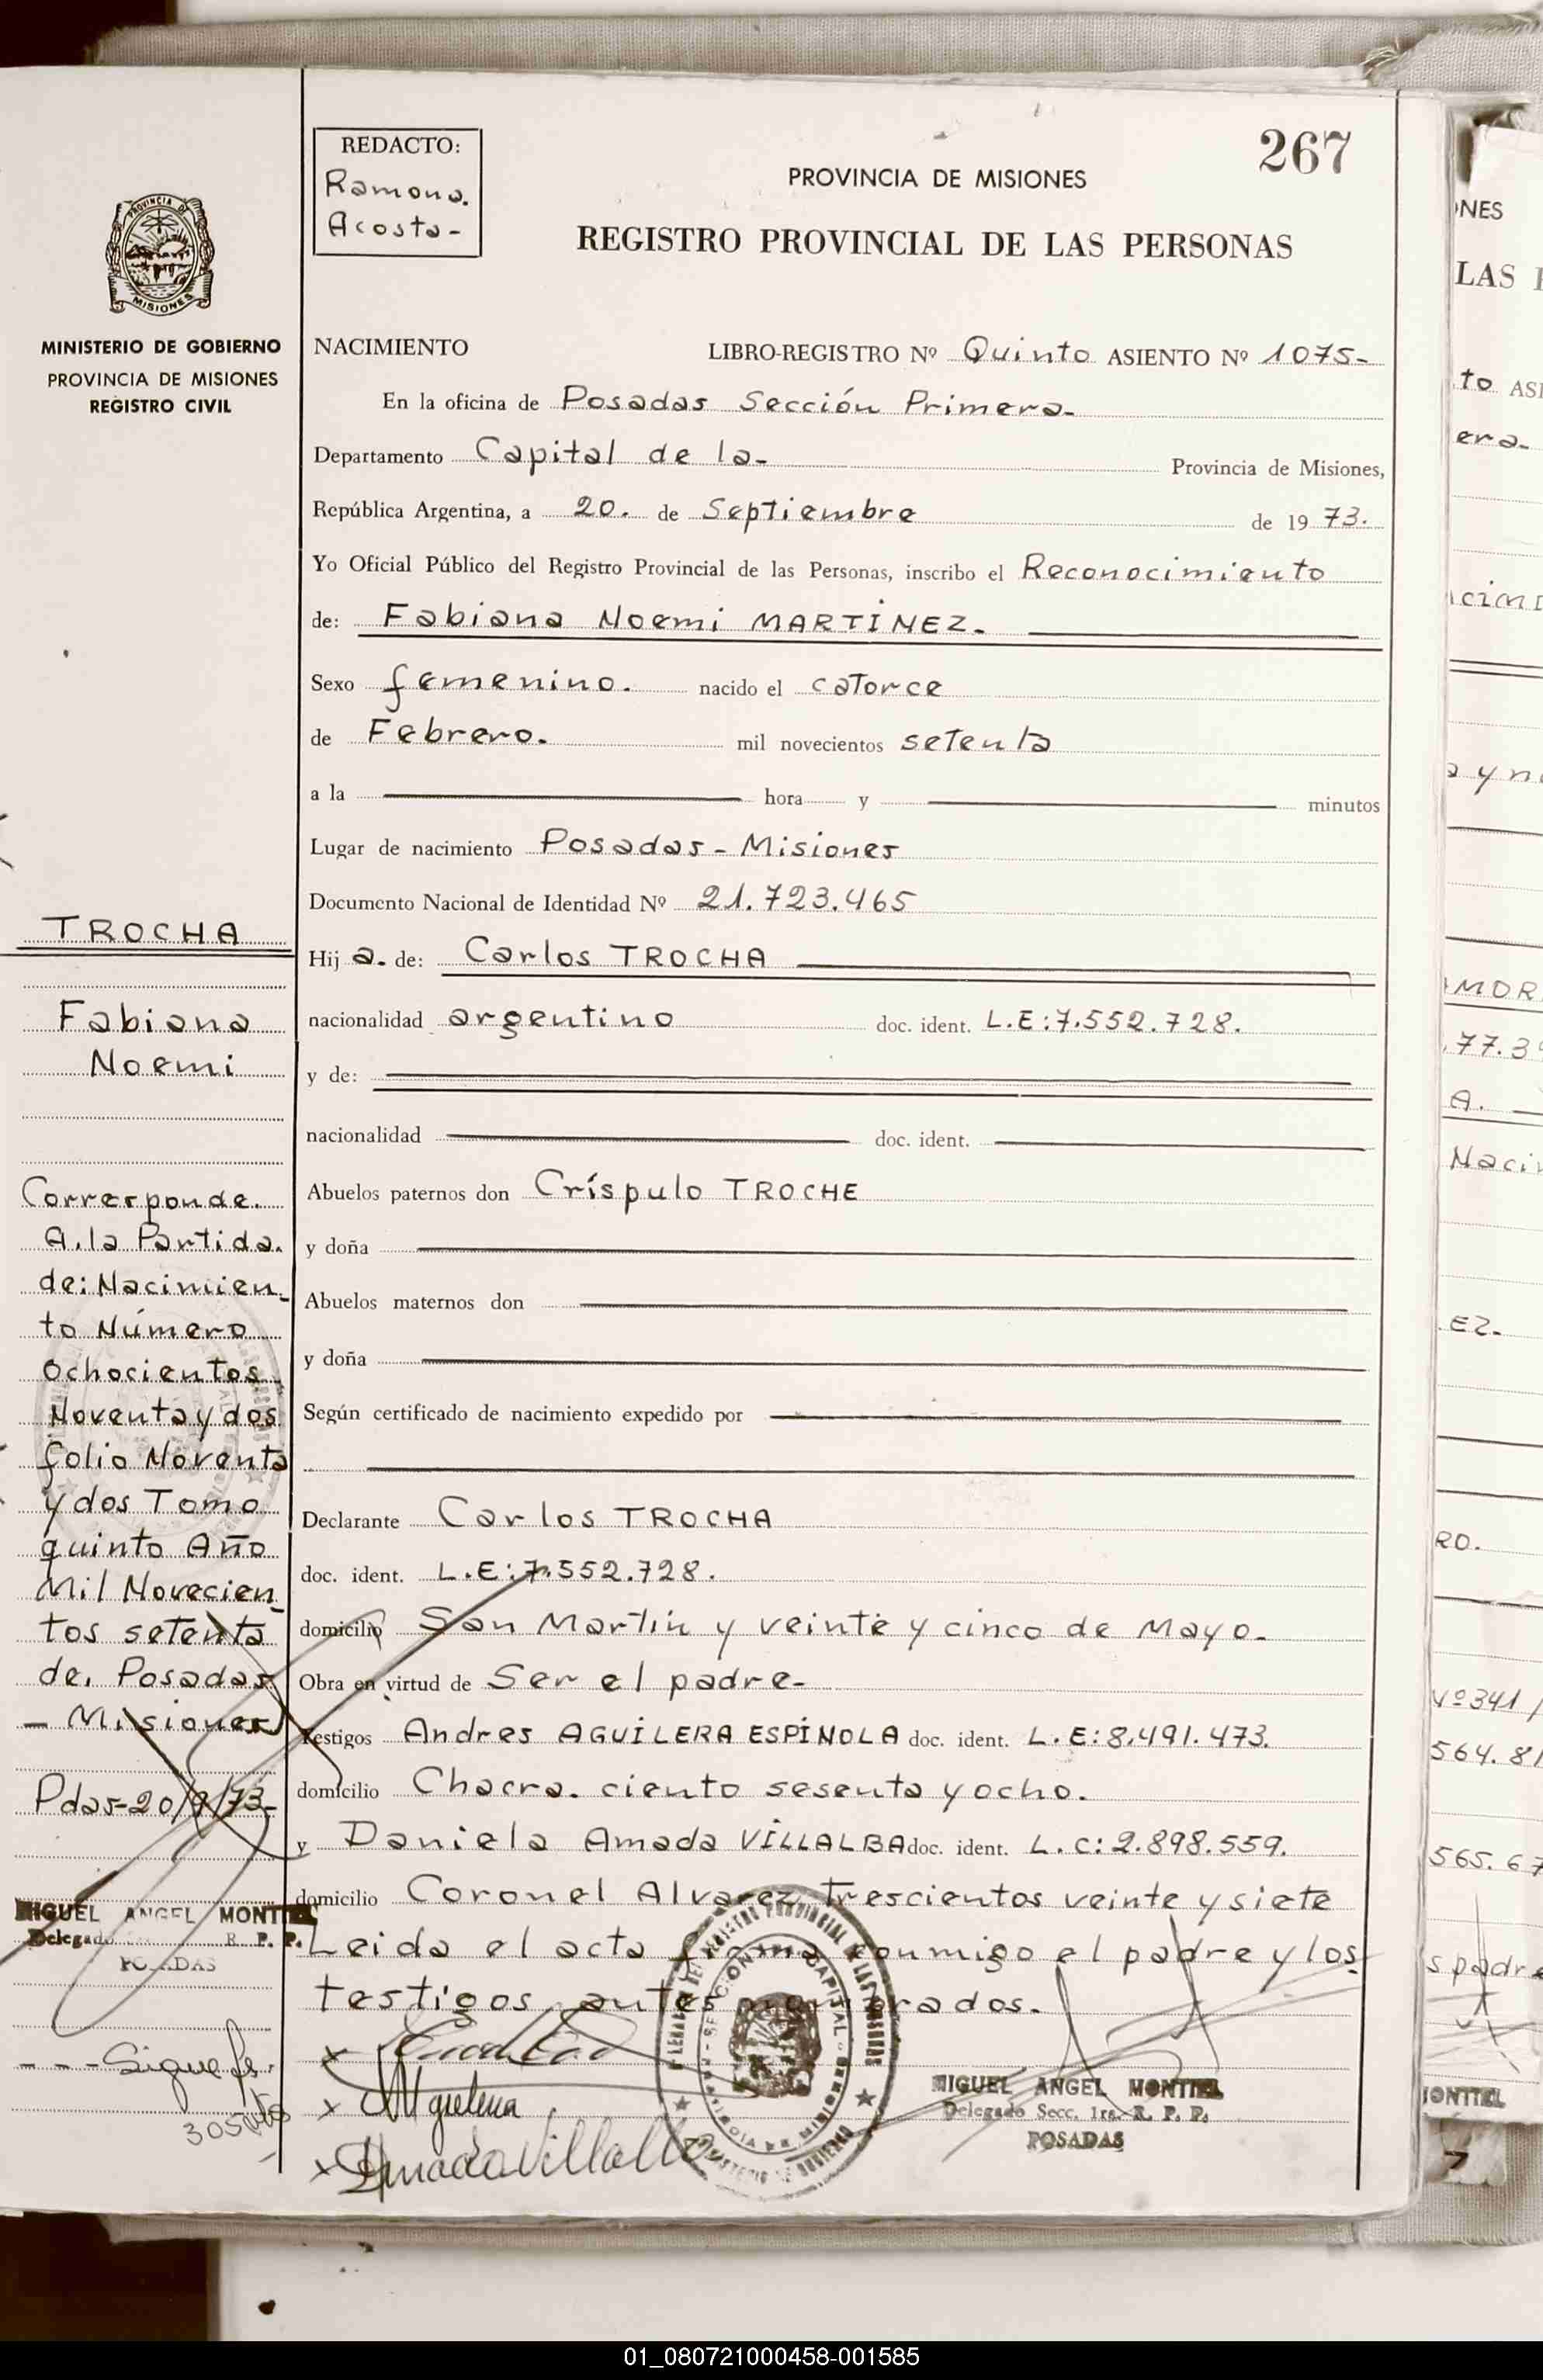 267
REDACTO:
Ramona.
Acosta-
PROVINCIA DE MISIONES
REGISTRO PROVINCIAL DE LAS PERSONAS
PROVINCIA DE
MISIONES
MINISTERIO DE GOBIERNO
PROVINCIA DE MISIONES
REGISTRO CIVIL
NACIMIENTO LIBRO-REGISTRO Nº Quinto ASIENTO Nº 1075-
En la oficina de Posadas Sección Primera-
Departamento Capital de la- Provincia de Misiones,
República Argentina, a 20. de Septiembre de 1973.
Yo Oficial Público del Registro Provincial de las Personas, inscribo el Reconocimiento
de: Fabiana Noemi MARTÍNEZ.
Sexo femenino. nacido el catorce
de Febrero. mil novecientos setenta
a la hora y minutos
Lugar de nacimiento Posadas - Misiones
Documento Nacional de Identidad Nº 21.723.465
Hij a. de: Carlos TROCHA
nacionalidad argentino doc. ident. L.E:7.552.728.
y de:
nacionalidad doc. ident.
Abuelos paternos don Críspulo TROCHE
y doña
Abuelos maternos don
y doña
Según certificado de nacimiento expedido por
Declarante Carlos TROCHA
doc. ident. L.E:7.552.728.
domicilio San Martín y veinte y cinco de Mayo-
Obra en virtud de Ser el padre-
Testigos Andres AGUÍLERA ESPÍNOLA doc. ident. L.E:8.491.473.
domicilio Chacra. ciento sesenta y ocho.
y Daniela Amada VÍLLALBA doc. ident. L.C:2.898.559.
domicilio Coronel Alvarez Trescientos veinte y siete
Leida el acta firma conmigo el padre y los
testigos antes nombrados.
Amada Villalba
MIGUEL ANGEL MONTIEL
Delegado Secc. 1ra. R. P. P.
POSADAS
TROCHA
Fabiana
Noemi
Corresponde.
A.la Partida.
de: Nacimien_
to Número
Ochocientos
Noventa y dos
folio Noventa
y dos Tomo
quinto Año
Mil Novecien_
tos setenta
de. Posadas
- Misiones
Pdas-20/9/73-
MIGUEL ANGEL MONTIEL
Delegado R. P. P.
POSADAS
- - - Sigue fs.
NES
LAS
to ASI
era-
MOR
77.3
A.
EZ-
RO.
Nº341/
564.81
565.67
s padre
MONTIEL
01_080721000458-001585